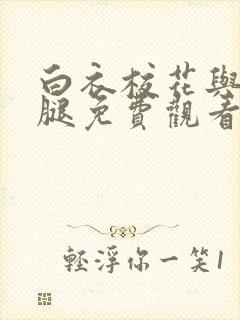 白衣校花與
腿免費觀看
輕浮你一笑1